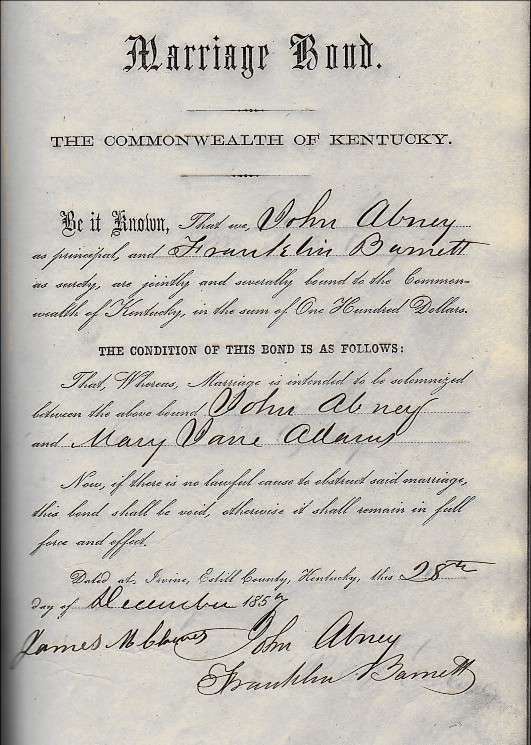 Marriage Bond.
THE COMMONWEALTH OF KENTUCKY.
Be it Known, That we, John Abney
as principal, and Franklin Barnett
as surety, are jointly and severally bound to the Common-
wealth of Kentucky, in the sum of One Hundred Dollars.
THE CONDITION OF THIS BOND IS AS FOLLOWS:
That, Whereas, Marriage is intended to be solemnized
between the above bound John Abney
and Mary Jane Adams
Now, if there is no lawful cause to obstruct said marriage,
this bond shall be void, otherwise it shall remain in full
force and effect.
Dated at Irvine, Estill County, Kentucky, this 28th
day of December 1857
James M John Abney
Franklin Barnett